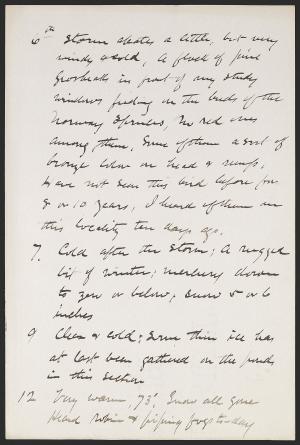 6th Storm abates a little, but very
windy & cold, A flock of pine
Grosbeaks in front of my study
windows feeding on the buds of the
Norway Spruces, No red ones
among them, Some of them a sort of
bronze color on head & rump,
Have not seen this bird before for
8 or 10 years, I heard of them in
this locality ten days ago.
7, Cold after the storm; A rugged
bit of winter; mercury down
to zero or below; snow 5 or 6
inches
9 Clear & cold; Some thin ice has
at last been gathered on the ponds
in this section
12 Very warm, 73°, Snow all gone
Heard robin & piping frogs to-day